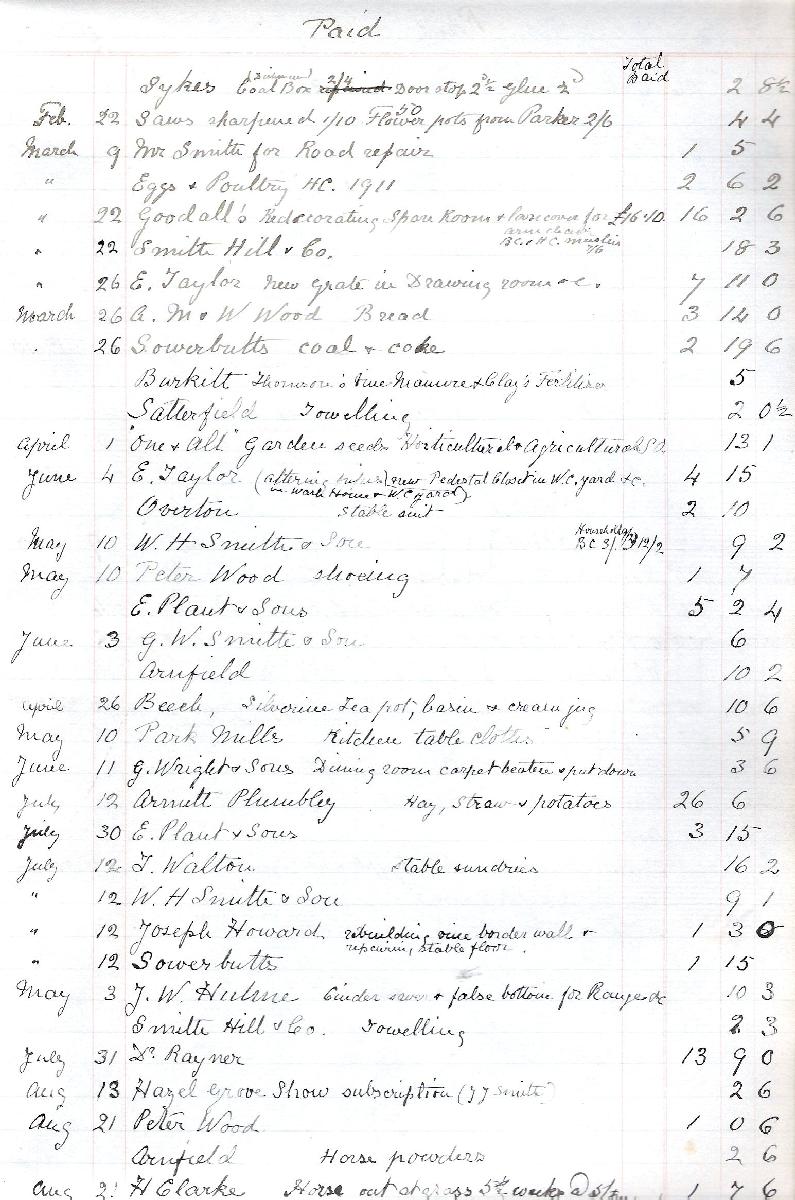 Paid
Total Paid
Sykes Coal Box 2/4 Doorstop 2½ᵈ Glue 2ᵈ 2 8½
Feb. 22 Saws sharpened 1/10 50 Flower pots from Parker 2/6 4 4
March 9 Mr Smith for Road repair 1 5
" Eggs & Poultry HC. 1911 2 6 2
" 22 Goodall's Redecorating Spare Room & for £16.10. 16 2 6
arm chair
B.C. & H.C. muslin 7/6
" 22 Smith Hill & Co. 18 3
" 26 E. Taylor new grate in Drawing room &c. 7 11 0
March 26 A. M & W Wood Bread 3 14 0
" 26 Sowerbutts coal & coke 2 19 6
Burkitt Thomson's Vine Manure & Clay's Fertilizer 5
Satterfield Towelling 2 0½
April 1 "One & All" Garden seeds Horticultural & Agricultural 13 1
June 4 E. Taylor (altering new Pedestal Closet in W.C. yard &c. 4 15
in Wash House & W.C yard)
Overton Stable suit 2 10
May 10 W. H Smith & Son Household BC 3/ 12/2 9 2
May 10 Peter Wood shoeing 1 7
E. Plant & Sons 5 2 4
June 3 G. W. Smith & Son 6
Arnfield 10 2
April 26 Beech, Silverine Tea pot, basin & cream jug 10 6
May 10 Park Mills Kitchen table cloths 5 9
June 11 G. Wright & Sons Dining room carpet beaten & put down 3 6
July 12 Armitt Plumbley Hay, Straw & potatoes 26 6
July 30 E. Plant & Sons 3 15
July 12 T. Walton Stable sundries 16 2
" 12 W. H Smith & Son 9 1
" 12 Joseph Howard rebuilding vine border wall & 1 3 0
repairing stable floor.
" 12 Sowerbutts 1 15
May 3 J. W. Hulme Cinder & false bottom for Range &c 10 3
Smith Hill & Co. Towelling 2 3
July 31 Dr Rayner 13 9 0
Aug 13 Hazel Grove Show subscription (J J Smith) 2 6
Aug 21 Peter Wood 1 0 6
Arnfield Horse powders 2 6
Aug 21 H Clarke Horse out at grass 5½ weeks @ 5/ 1 7 6